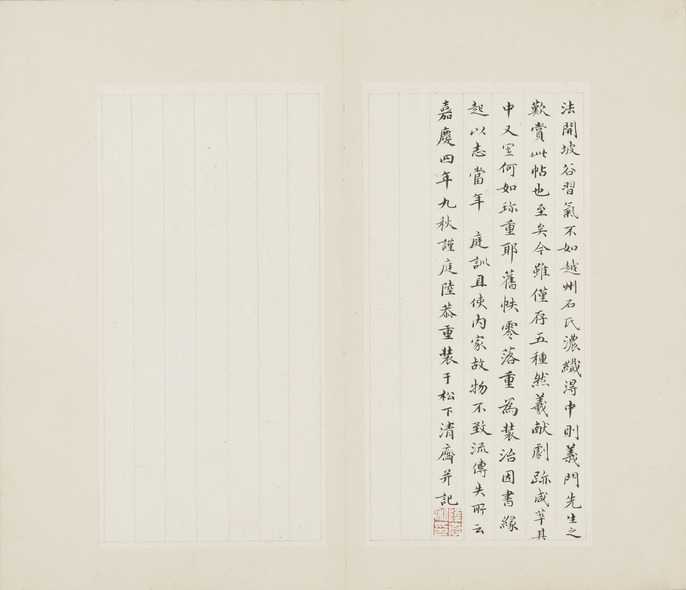 法開坡谷習氣不如越州石氏濃纖得中則義門先生之
歎賞此帖也至矣今雖僅存五種然羲獻劇跡咸萃其
中又寔何如珎重耶舊帙零落重為裝治因書緣
起以志當年 庭訓且使內家故物不致流傳失所云
嘉慶四年九秋謹庭陸恭重裝于松下清齋并記